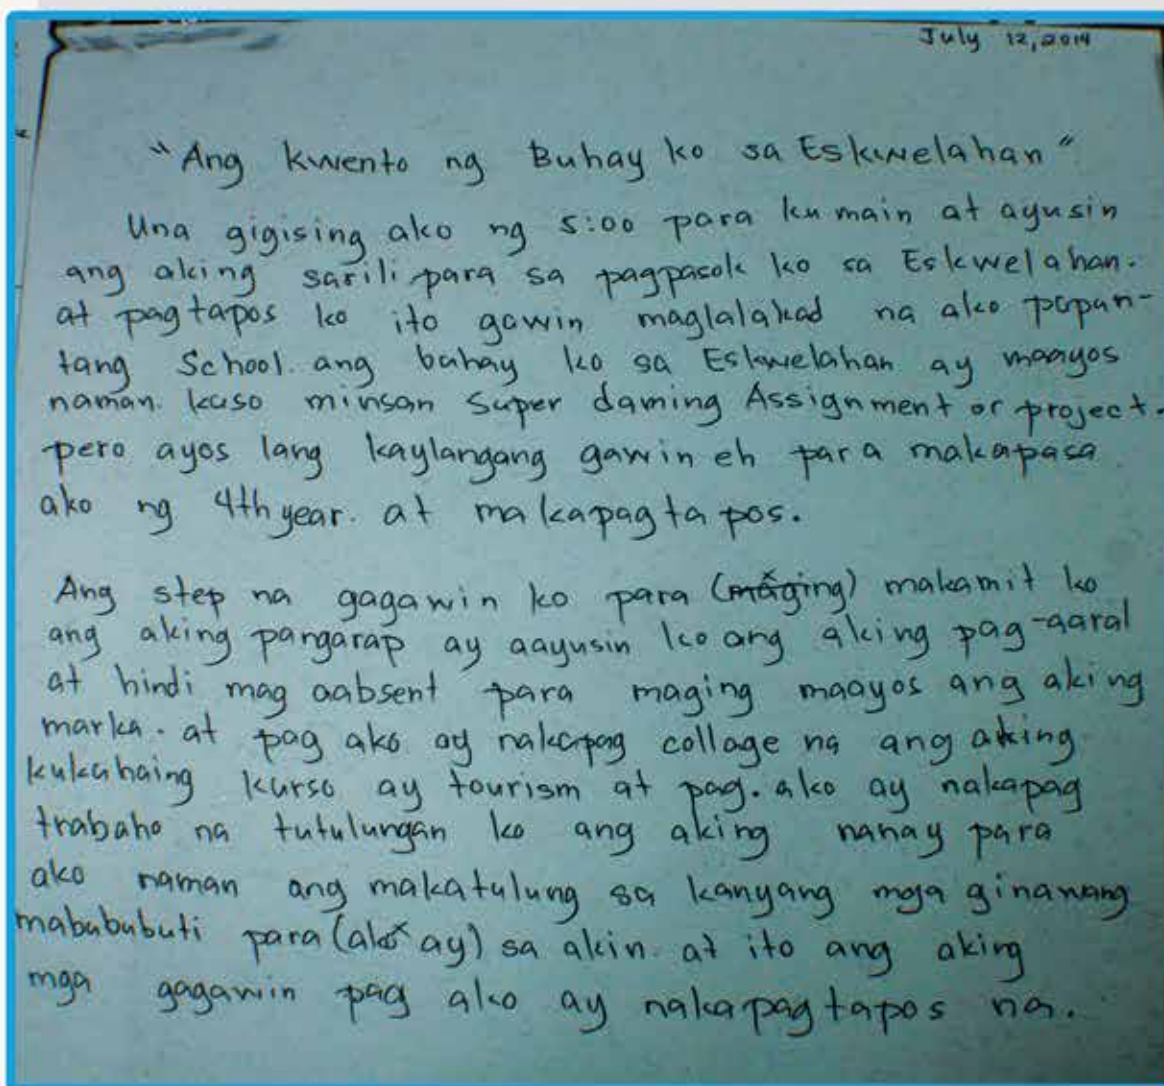 July 12, 2014
"Ang kwento ng Buhay ko sa Eskwelahan"
Una gigising ako ng 5:00 para kumain at ayusin
ang aking sarili para sa pagpasok ko sa Eskwelahan.
at pagtapos ko ito gawin maglalakad na ako papun-
tang School. ang buhay ko sa Eskwelahan ay maayos
naman. kaso minsan super daming Assignment or project.
pero ayos lang kaylangang gawin eh para makapasa
ako ng 4th year. at makapagtapos.
Ang step na gagawin ko para (maging) makamit ko
ang aking pangarap ay aayusin ko ang aking pag-aaral
at hindi mag aabsent para maging maayos ang aking
marka. at pag ako ay nakapag collage na ang aking
kukuhaing kurso ay tourism at pag. ako ay nakapag
trabaho na tutulungan ko ang aking nanay para
ako naman ang makatulung sa kanyang mga ginawang
mabubabuti para (ako ay) sa akin. at ito ang aking
mga gagawin pag ako ay nakapagtapos na.